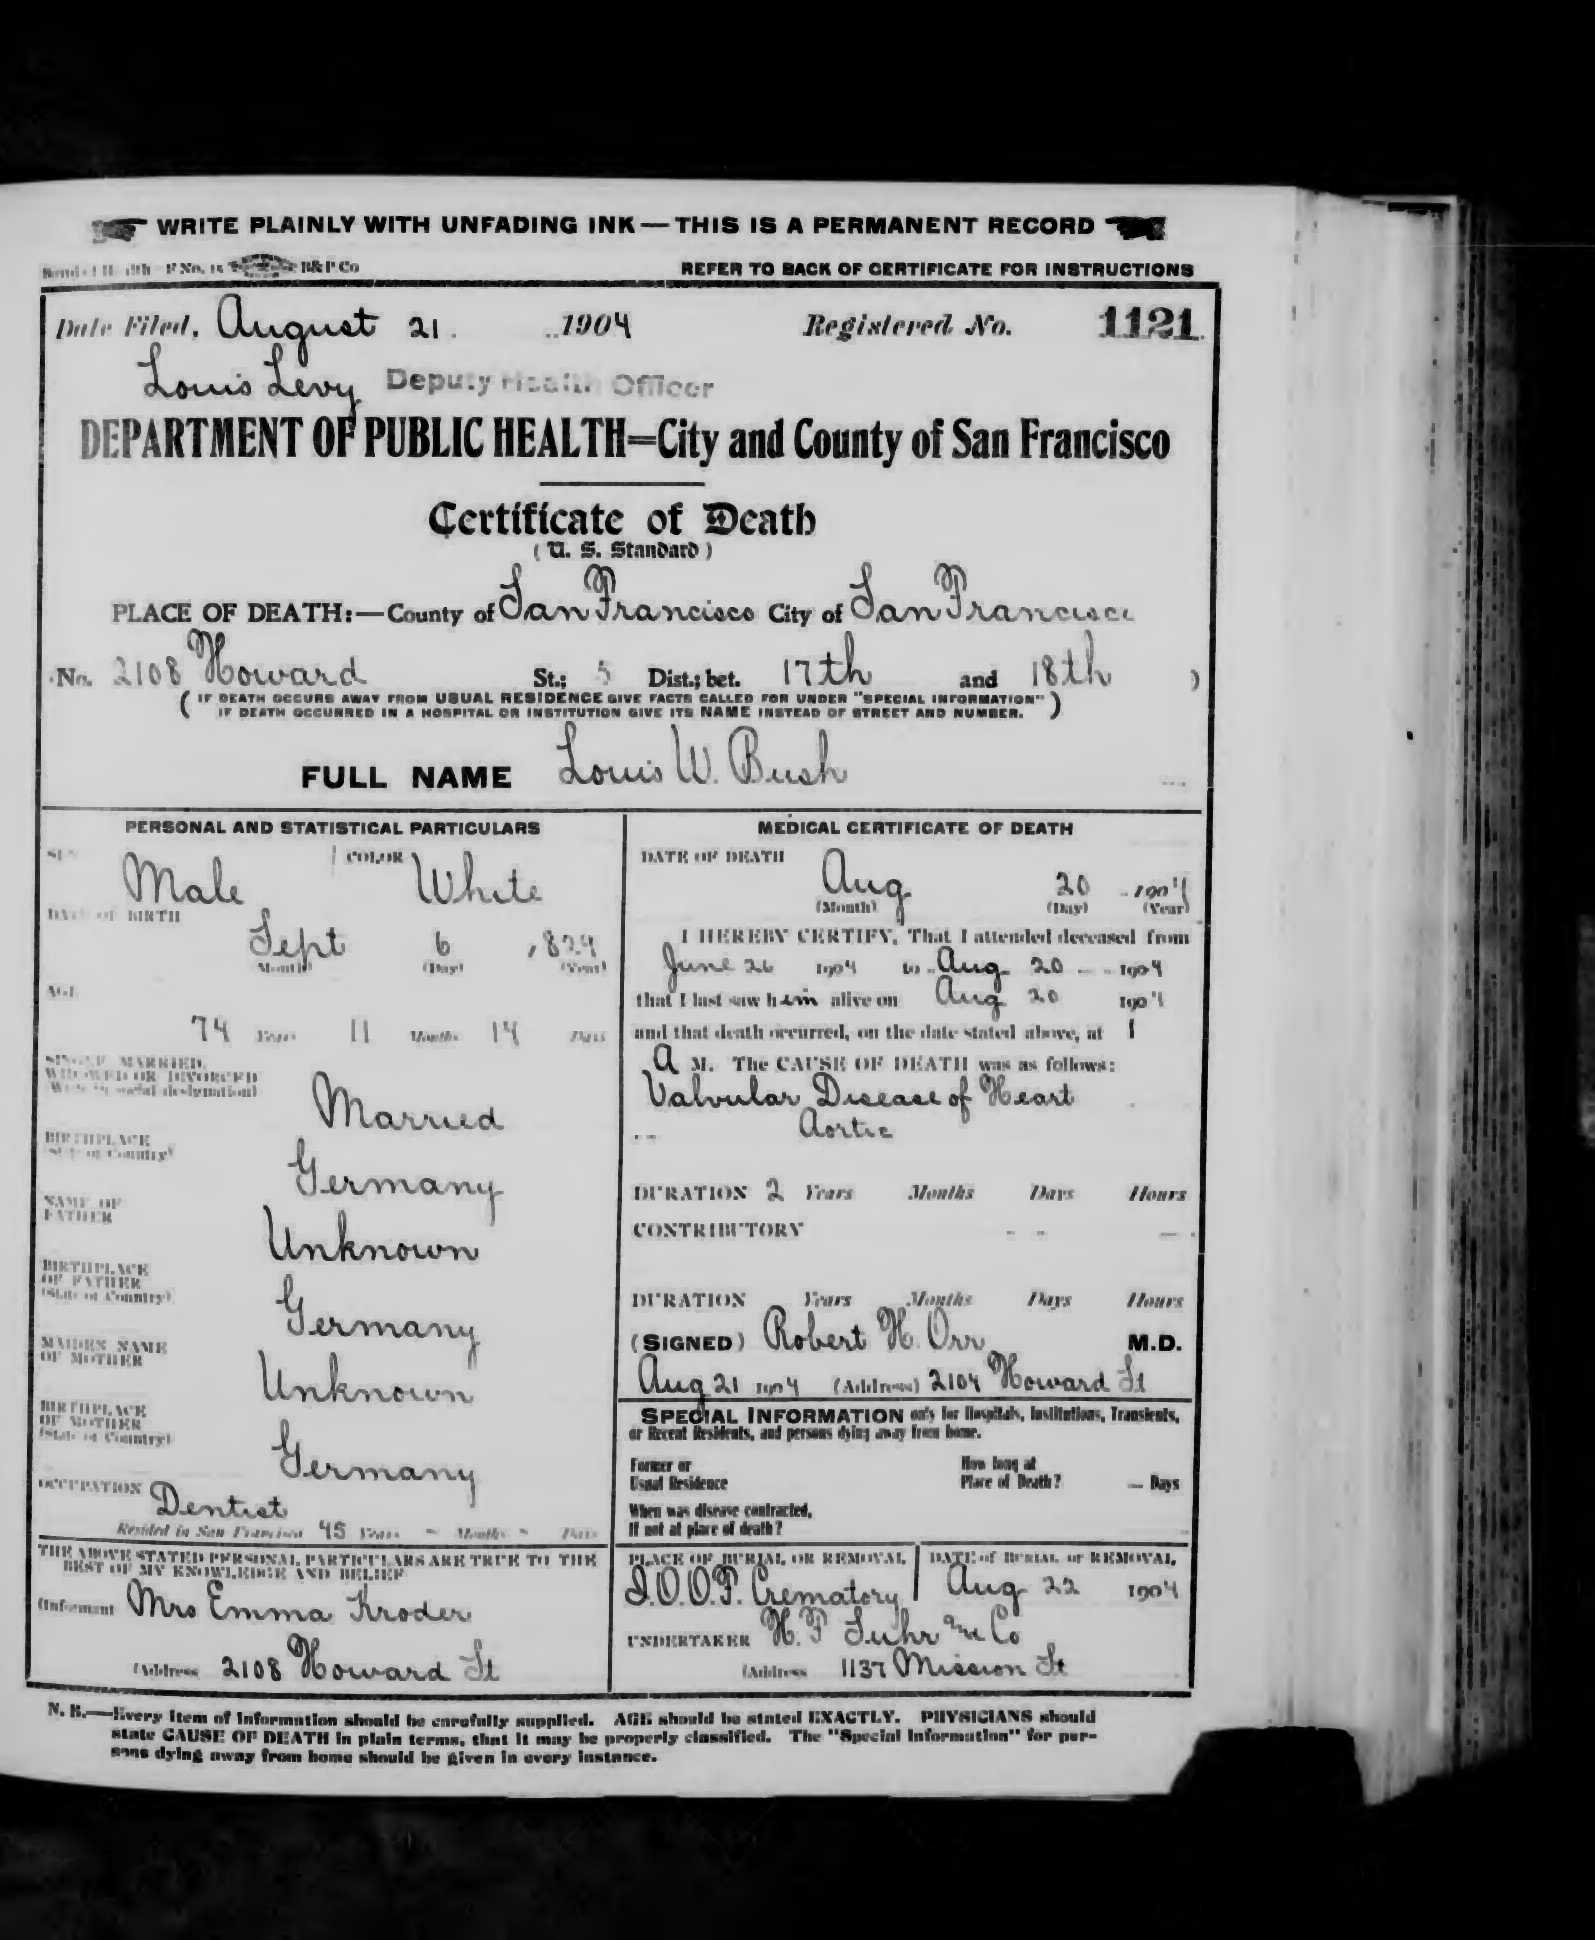 WRITE PLAINLY WITH UNFADING INK — THIS IS A PERMANENT RECORD
B&P Co
REFER TO BACK OF CERTIFICATE FOR INSTRUCTIONS
Date Filed, August 21 1904 Registered No. 1121
Louis Levy Deputy Health Officer
DEPARTMENT OF PUBLIC HEALTH=City and County of San Francisco
Certificate of Death
(U. S. Standard)
PLACE OF DEATH:—County of San Francisco City of San Francisco
No. 2108 Howard St.; 5 Dist.; bet. 17th and 18th )
( IF DEATH OCCURS AWAY FROM USUAL RESIDENCE GIVE FACTS CALLED FOR UNDER "SPECIAL INFORMATION"
IF DEATH OCCURRED IN A HOSPITAL OR INSTITUTION GIVE ITS NAME INSTEAD OF STREET AND NUMBER. )
FULL NAME Louis W. Bush
PERSONAL AND STATISTICAL PARTICULARS
SEX Male COLOR White
DATE OF BIRTH
Sept 6 , 829
(Month) (Day) (Year)
AGE
74 Years 11 Months 14 Days
SINGLE, MARRIED,
WIDOWED OR DIVORCED
(Write in social designation)
Married
BIRTHPLACE
(State or Country)
Germany
NAME OF
FATHER
Unknown
BIRTHPLACE
OF FATHER
(State or Country)
Germany
MAIDEN NAME
OF MOTHER
Unknown
BIRTHPLACE
OF MOTHER
(State or Country)
Germany
OCCUPATION Dentist
Resided in San Francisco 45 Years - Months - Days
THE ABOVE STATED PERSONAL PARTICULARS ARE TRUE TO THE
BEST OF MY KNOWLEDGE AND BELIEF
(Informant Mrs Emma Kroder
(Address 2108 Howard St
MEDICAL CERTIFICATE OF DEATH
DATE OF DEATH
Aug 20 1904
(Month) (Day) (Year)
I HEREBY CERTIFY, That I attended deceased from
June 26 1904 to Aug 20 1904
that I last saw him alive on Aug 20 1904
and that death occurred, on the date stated above, at 1
A M. The CAUSE OF DEATH was as follows:
Valvular Disease of Heart
Aortic
DURATION 2 Years Months Days Hours
CONTRIBUTORY
DURATION Years Months Days Hours
(SIGNED) Robert H. Orr M.D.
Aug 21 1904 (Address) 2104 Howard St
SPECIAL INFORMATION only for Hospitals, Institutions, Transients,
or Recent Residents, and persons dying away from home.
Former or
Usual Residence
How long at
Place of Death? — Days
When was disease contracted,
If not at place of death?
PLACE OF BURIAL OR REMOVAL
I.O.O.F. Crematory
DATE of BURIAL or REMOVAL
Aug 22 1904
UNDERTAKER H. F Suhr and Co
(Address 1137 Mission St
N. B.—Every item of information should be carefully supplied. AGE should be stated EXACTLY. PHYSICIANS should
state CAUSE OF DEATH in plain terms, that it may be properly classified. The "Special Information" for per-
sons dying away from home should be given in every instance.